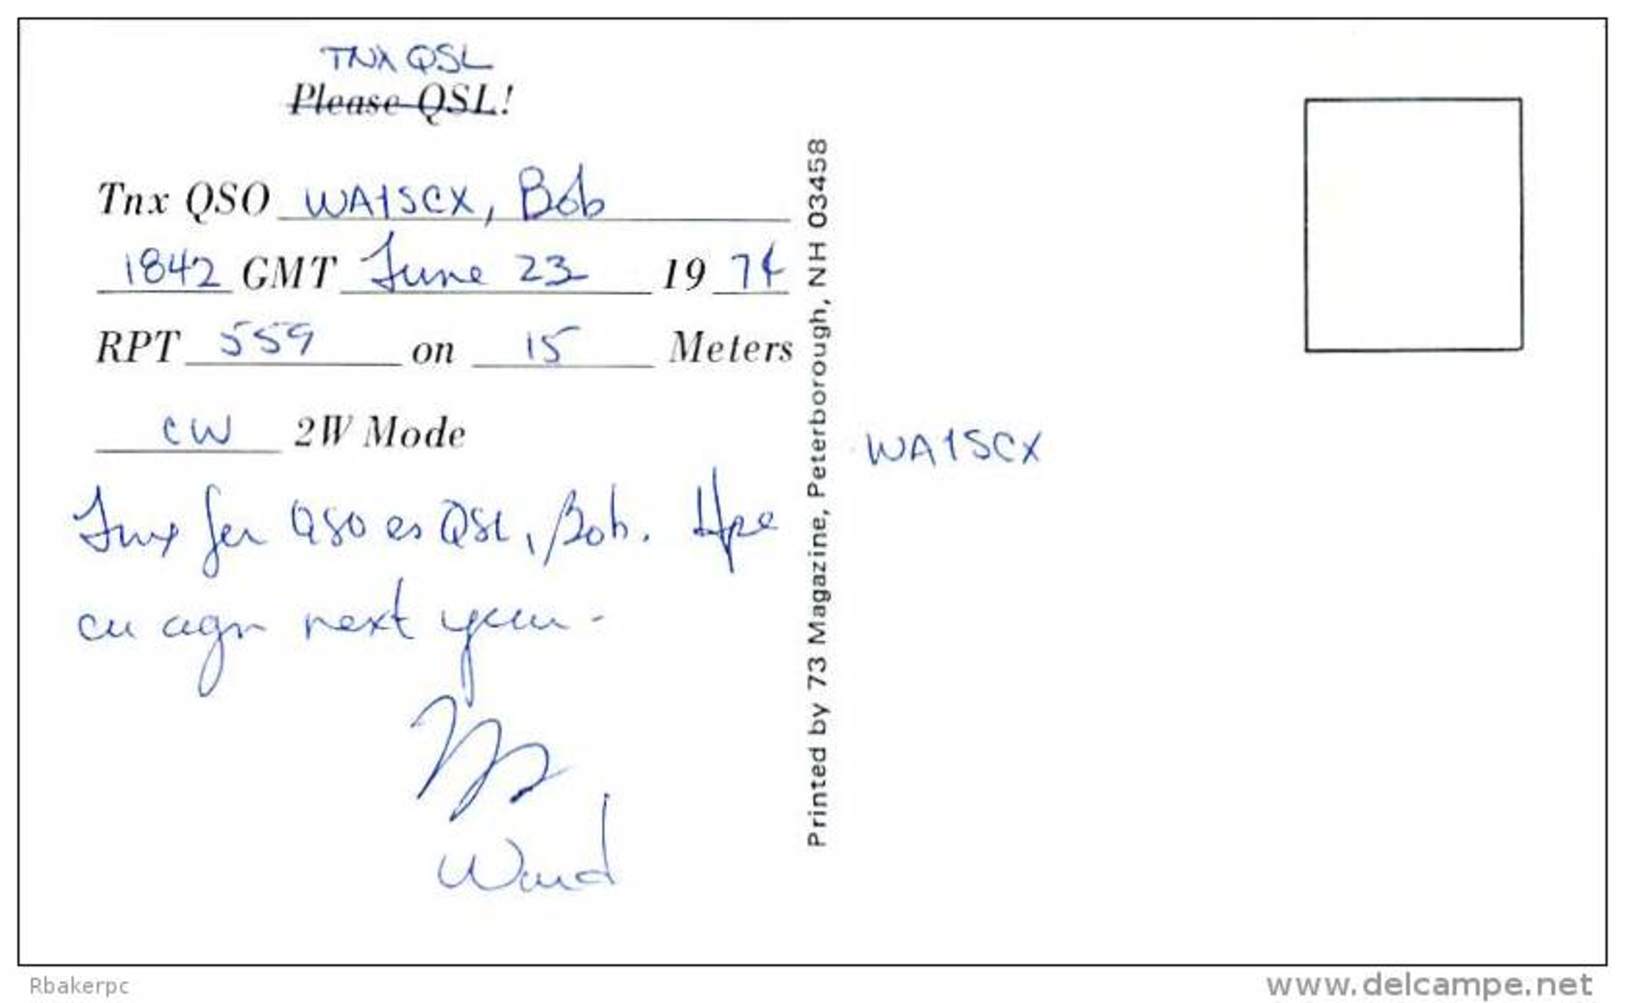 TNX QSL
Please QSL!
Tnx QSO WA1SCX, Bob
1842 GMT June 23 1974
RPT 559 on 15 Meters
CW 2W Mode
Tnx fer QSO es QSL, Bob. Hpe
cu agn next year -
73
Ward
WA1SCX
Printed by 73 Magazine, Peterborough, NH 03458
Rbakerpc
www.delcampe.net